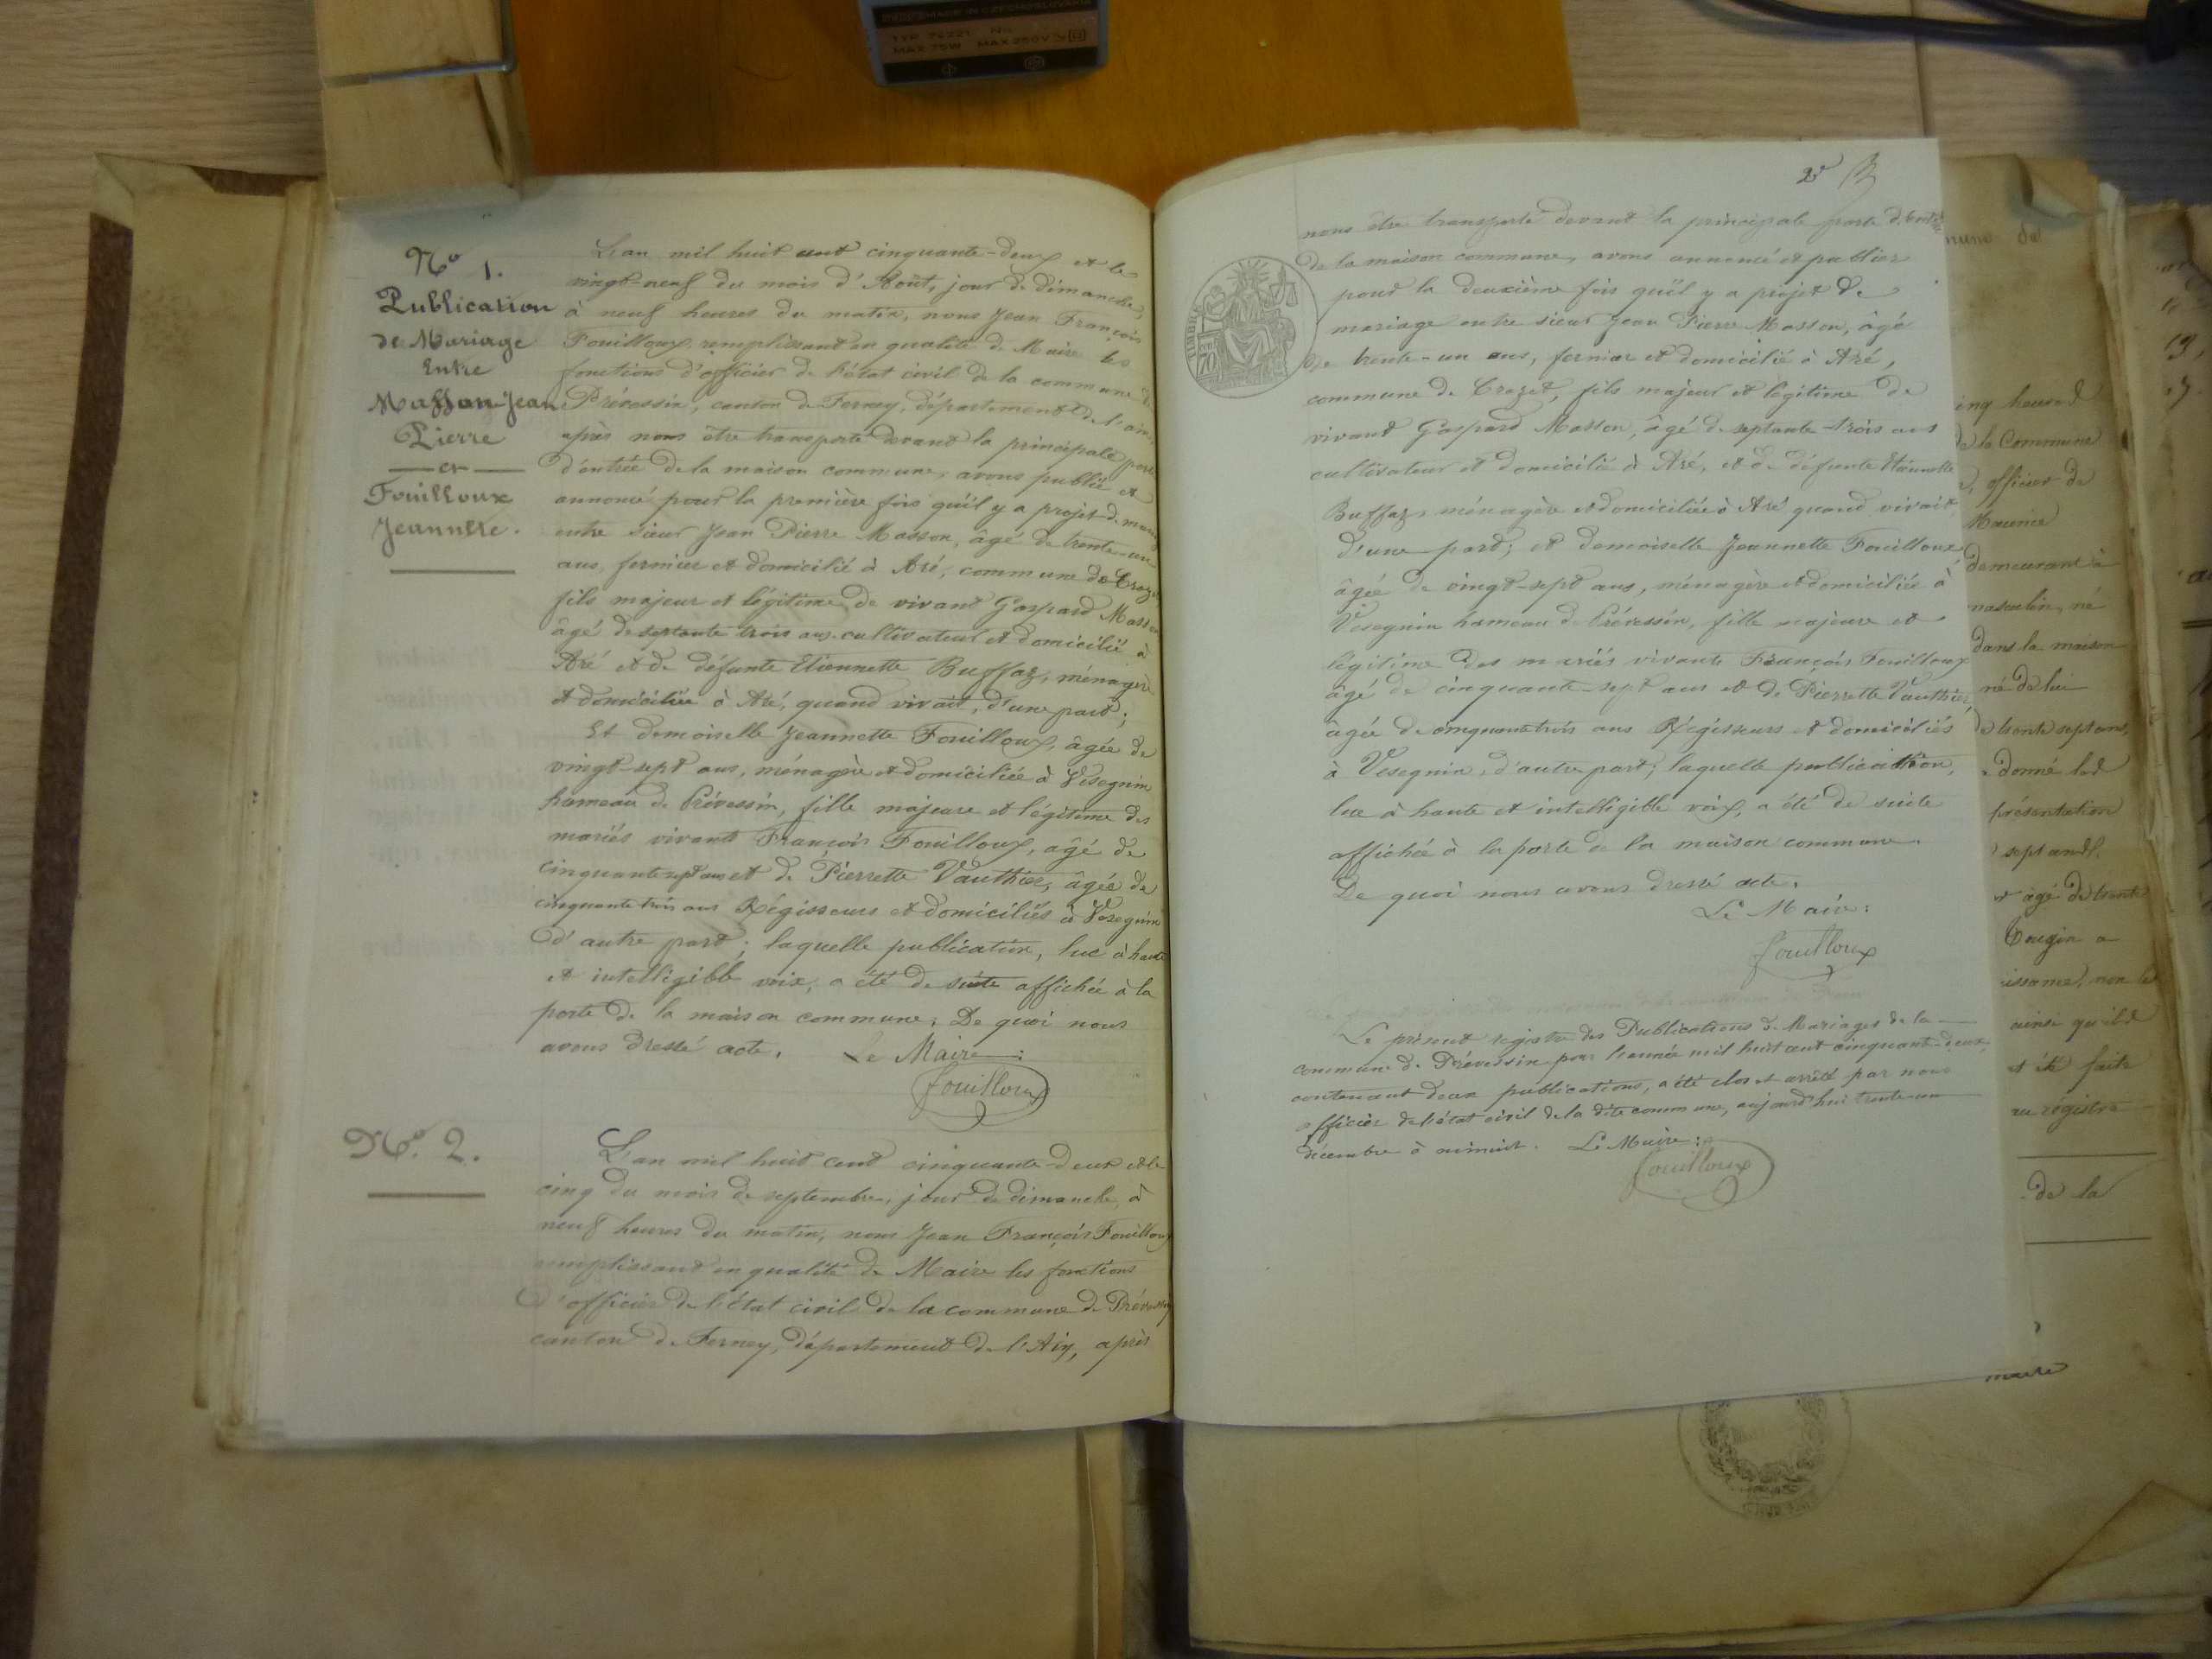 MADE IN CZECHOSLOVAKIA
TYP 74221 No
MAX 75W MAX 250V
No 1.
Publication
de Mariage
Entre
Masson Jean
Pierre
et
Fouilloux
Jeannette.
L'an mil huit cent cinquante-deux et le
vingt-neuf du mois d'Août, jour de dimanche,
à neuf heures du matin, nous Jean François
Fouilloux remplissant en qualité de Maire les
fonctions d'officier de l'état civil de la commune de
Prévessin, canton de Ferney, département de l'ain,
après nous être transporté devant la principale porte
d'entrée de la maison commune, avons publié et
annoncé pour la première fois qu'il y a projet de mariage
entre sieur Jean Pierre Masson, âgé de trente-un
ans, fermier et domicilié à Aré, commune de Crozet
fils majeur et légitime de vivant Gaspard Masson
âgé de septante trois ans cultivateur et domicilié à
Aré et de défunte Etiennette Buffaz, ménagère
et domiciliée à Aré, quand vivait, d'une part;
Et demoiselle Jeannette Fouilloux, âgée de
vingt-sept ans, ménagère et domiciliée à Vésegnin
hameau de Prévessin, fille majeure et légitime des
mariés vivants François Fouilloux, âgé de
cinquante sept ans et de Pierrette Vauthier, âgée de
cinquante trois ans Régisseurs et domiciliés à Vésegnin
d'autre part; laquelle publication, lue à haute
et intelligible voix, a été de suite affichée à la
porte de la maison commune; De quoi nous
avons dressé acte. Le Maire:
Fouilloux
No. 2.
L'an mil huit cent cinquante-deux et le
cinq du mois de septembre, jour de dimanche, à
neuf heures du matin, nous Jean François Fouilloux
remplissant en qualité de Maire les fonctions
d'officier de l'état civil de la commune de Prévessin
canton de Ferney, département de l'Ain, après
2e
nous être transporté devant la principale porte d'entrée
de la maison commune, avons annoncé et publier
pour la deuxième fois qu'il y a projet de
mariage entre sieur Jean Pierre Masson, âgé
de trente-un ans, fermier et domicilié à Aré,
commune de Crozet, fils majeur et légitime de
vivant Gaspard Masson, âgé de septante-trois ans
cultivateur et domicilié à Aré, et de défunte Etiennette
Buffaz, ménagère et domiciliée à Aré quand vivait,
d'une part; et demoiselle Jeannette Fouilloux
âgée de vingt-sept ans, ménagère et domiciliée à
Vésegnin hameau de Prévessin, fille majeure et
légitime des mariés vivants François Fouilloux
âgé de cinquante-sept ans et de Pierrette Vauthier,
âgée de cinquante trois ans Régisseurs et domiciliés
à Vésegnin, d'autre part; laquelle publication,
lue à haute et intelligible voix, a été de suite
affichée à la porte de la maison commune.
De quoi nous avons dressé acte.
Le Maire:
Fouilloux
Le présent registre des Publications de Mariages de la
commune de Prévessin pour l'année mil huit cent cinquante-deux,
contenant deux publications, a été clos et arrêté par nous
officier de l'état civil de la dite commune, aujourd'hui trente-un
décembre à minuit. Le Maire:
Fouilloux
TIMBRE
70
de la Commune
officier de
Maurice
demeurant à
masculin, né
dans la maison
né de lui
de trente sept ans,
donné led
présentation
âgé de trente
Gougin a
ainsi qu'il
et été faite
au registre
de la
maire